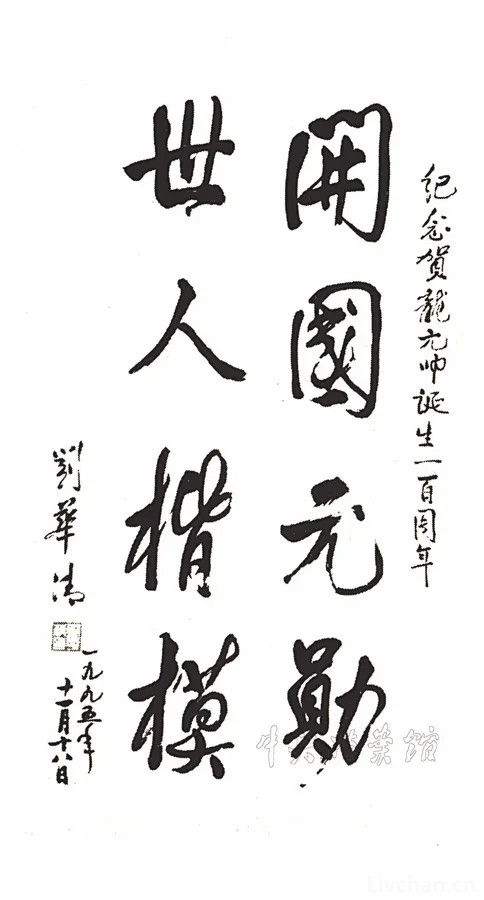 纪念贺龍元帅诞生一百周年
開國元勛
世人楷模
劉華清
一九九五年
十一月十八日
中央档案馆
Livchan.cn